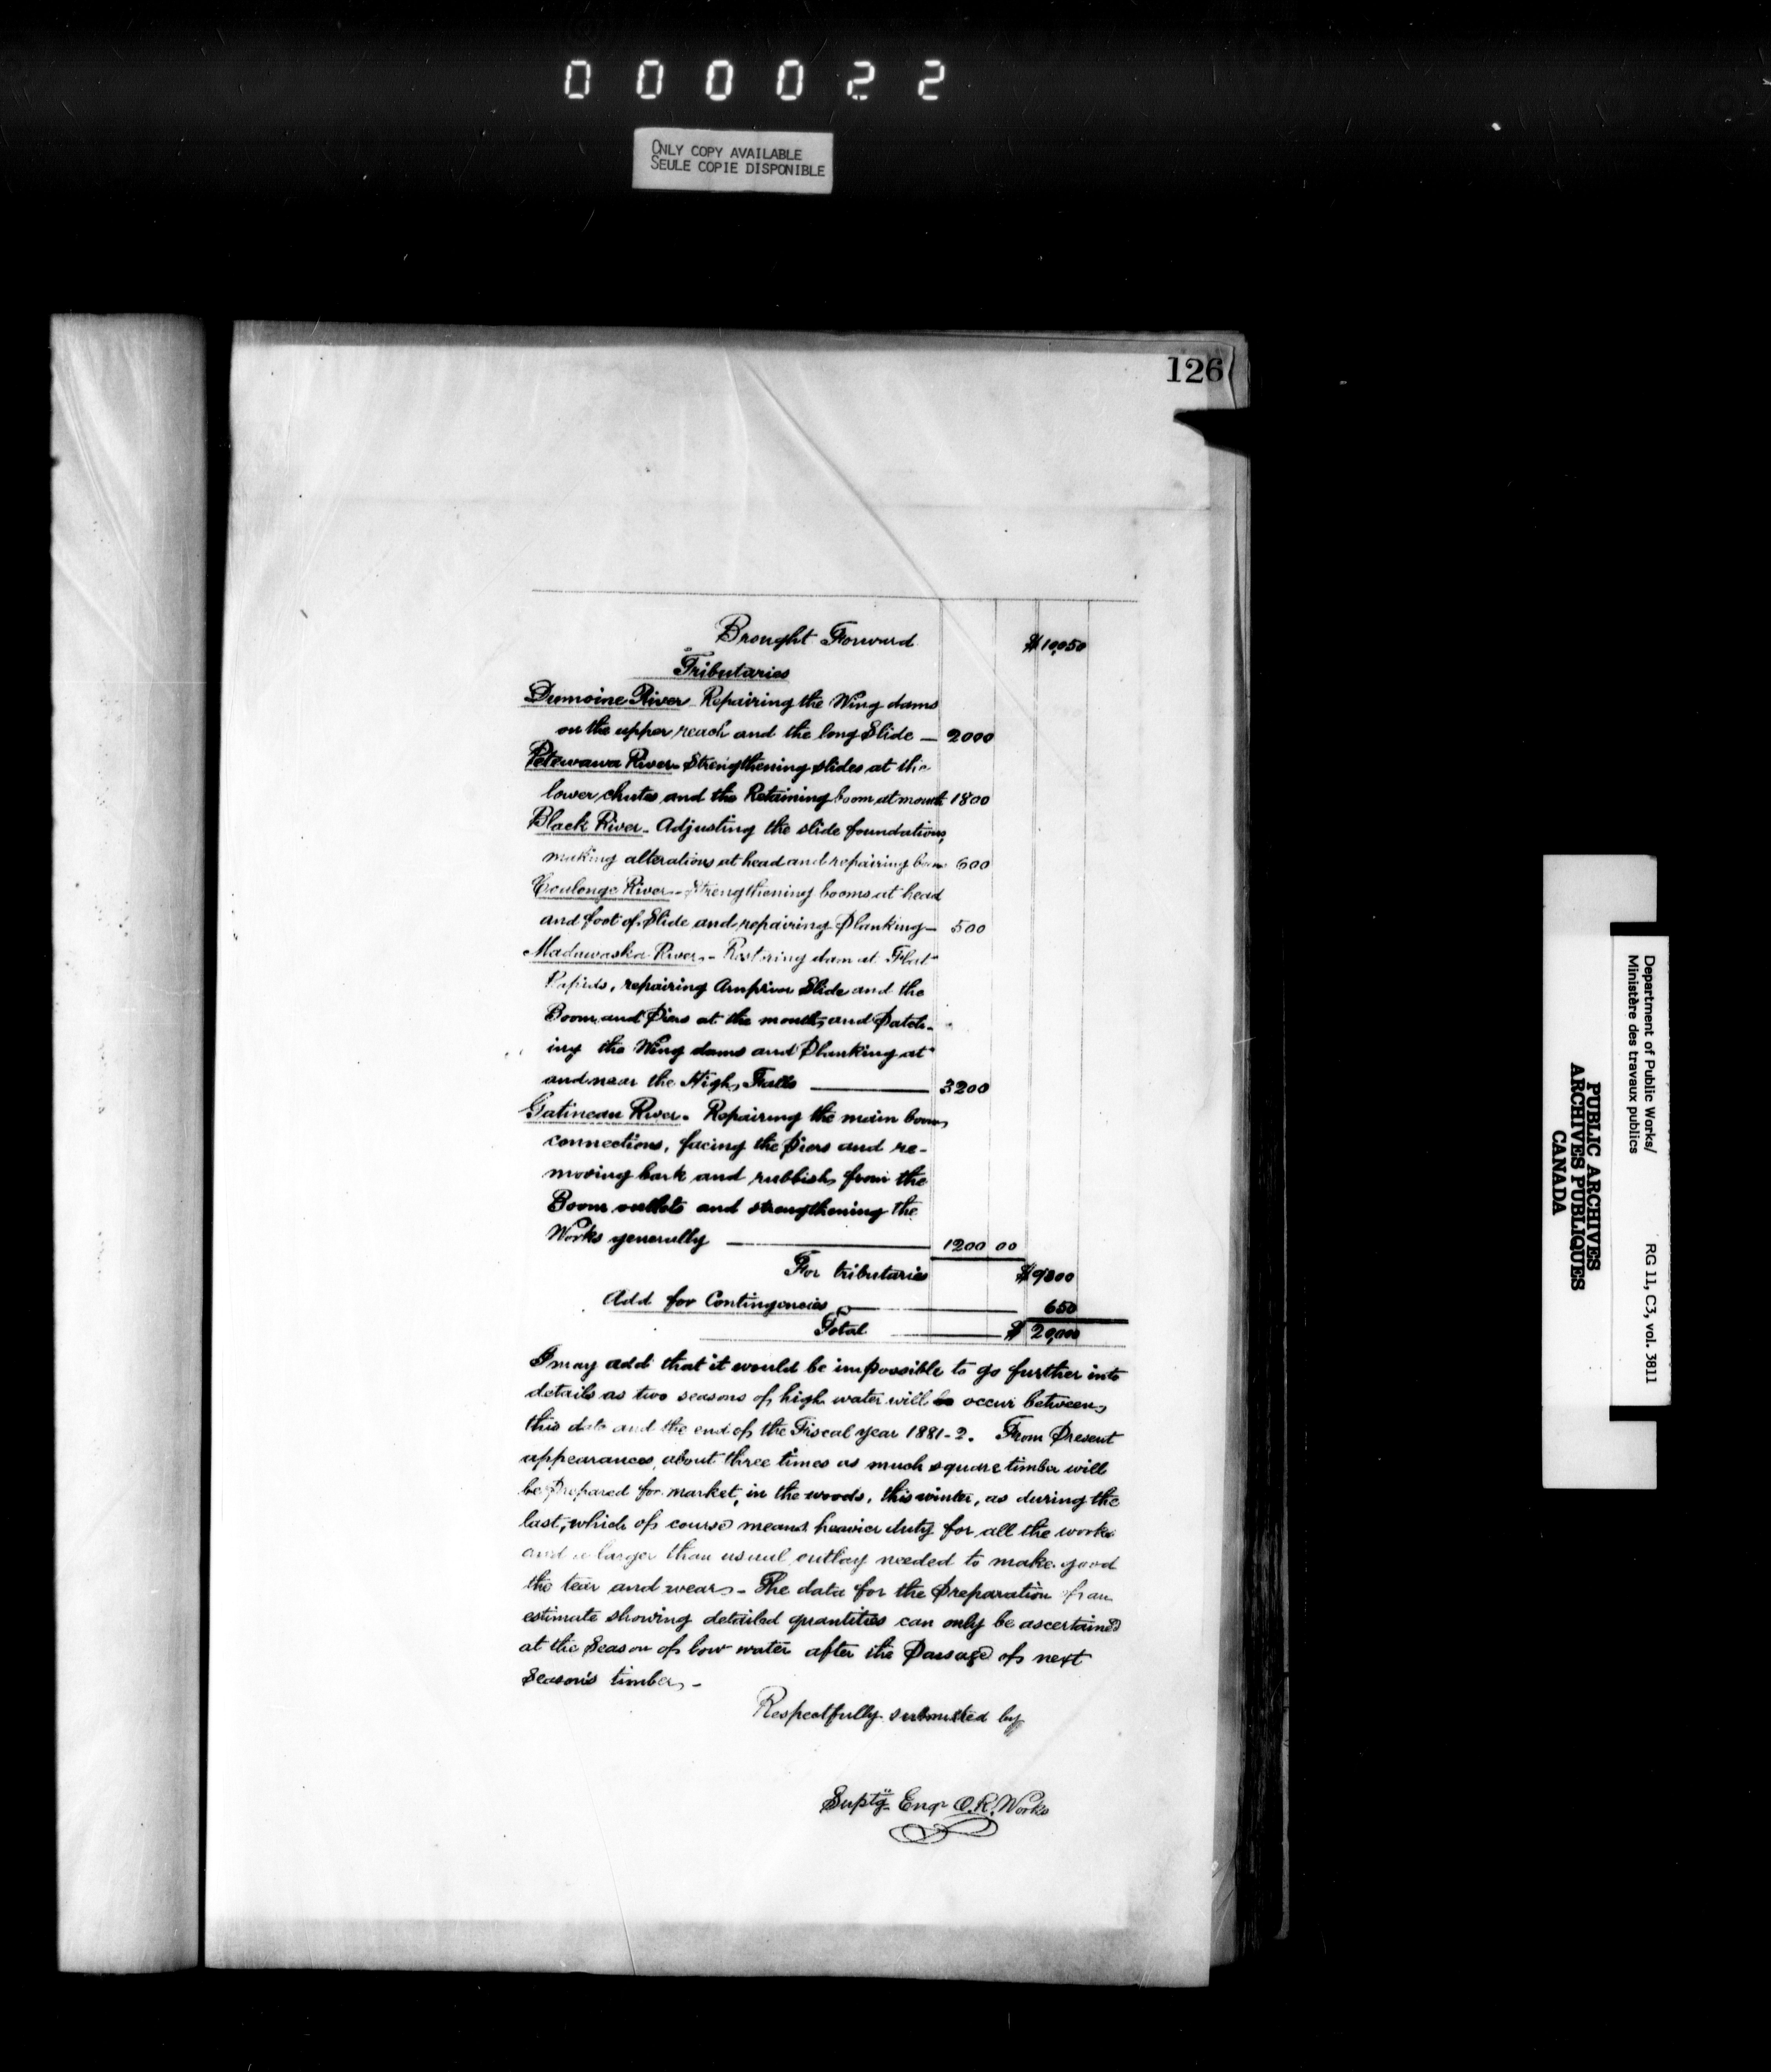 000022
ONLY COPY AVAILABLE
SEULE COPIE DISPONIBLE
126
Brought Forward $10,050
Tributaries
Dumoine River - Repairing the Wing dams
on the upper reach and the long Slide — 2000
Petewawa River - Strengthening slides at the
lower chutes and the Retaining boom at mouth 1800
Black River - Adjusting the slide foundations,
making alterations at head and repairing boom 600
Coulonge River - Strengthening booms at head
and foot of Slide and repairing Planking — 500
Madawaska River - Restoring dam at Flat
Rapids, repairing Arnprior Slide and the
Boom and Piers at the mouth, and Patch-
ing the Wing dams and Planking at
and near the High Falls — 3200
Gatineau River - Repairing the main boom,
connections, facing the Piers and re-
moving bark and rubbish from the
Boom outlets and strengthening the
Works generally — 1200 00
For tributaries $9300
Add for Contingencies — 650
Total — $ 20,000
I may add that it would be impossible to go further into
details as two seasons of high water will be occur between
this date and the end of the Fiscal year 1881-2. From Present
appearances, about three times as much square timber will
be Prepared for market, in the woods, this winter, as during the
last, which of course means heavier duty for all the works
and a larger than usual outlay needed to make good
the tear and wear - The data for the Preparation of an
estimate showing detailed quantities can only be ascertained
at the Season of low water after the Passage of next
Season's timber -
Respectfully submitted by
Suptg Engr O.R. Works
Department of Public Works/
Ministère des travaux publics
RG 11, C3, vol. 3811
PUBLIC ARCHIVES
ARCHIVES PUBLIQUES
CANADA